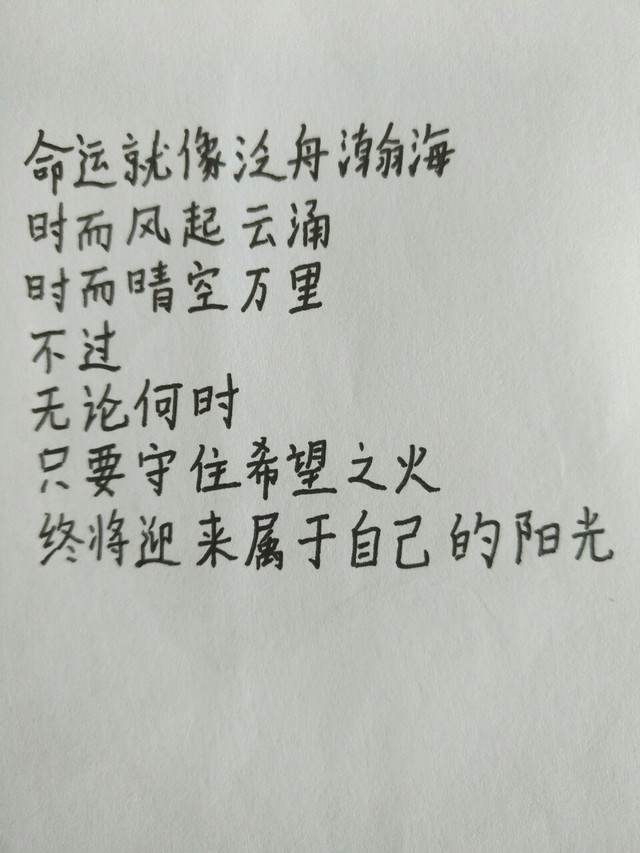 命运就像泛舟瀚海
时而风起云涌
时而晴空万里
不过
无论何时
只要守住希望之火
终将迎来属于自己的阳光